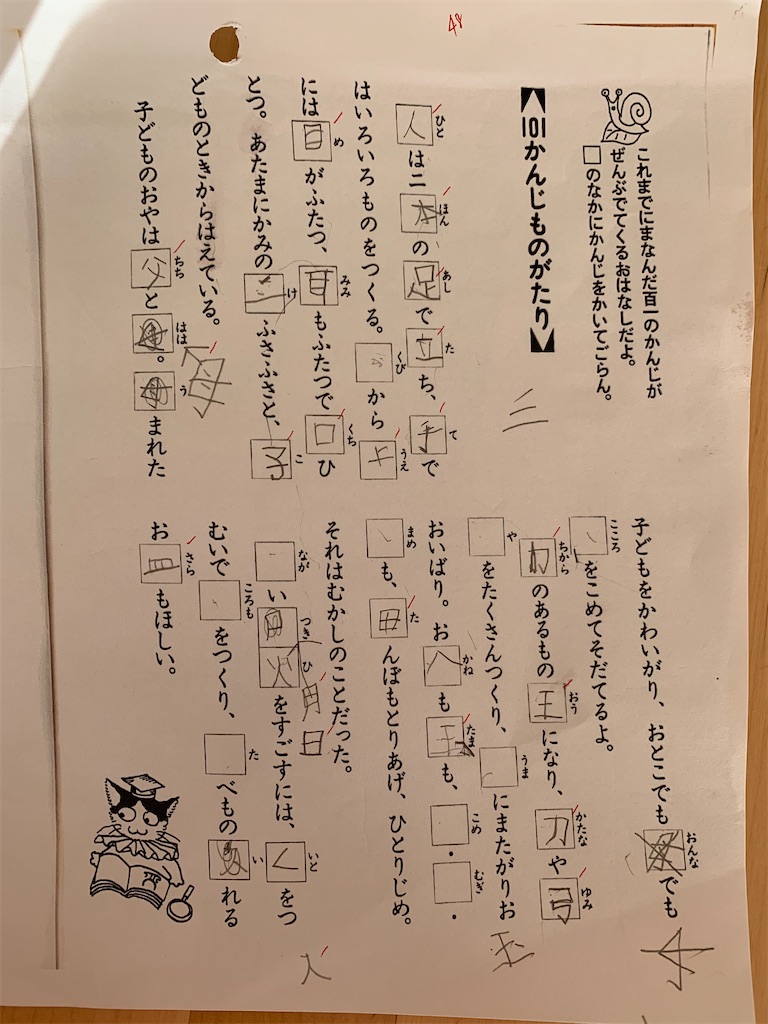 これまでにまなんだ百一のかんじが
ぜんぶでてくるおはなしだよ。
□のなかにかんじをかいてごらん。
101かんじものがたり
三
ひと ほん あし た て
人は二本の足で立ち、手で
くび うえ
はいろいろものをつくる。□から上
め みみ くち
には目がふたつ、耳もふたつで口ひ
け こ
とつ。あたまにかみの三ふさふさと、子
どものときからはえている。
ちち はは う
子どものおやは父と母。□まれた
母
おんな
子どもをかわいがり、おとこでも□でも
女
こころ
□をこめてそだてるよ。
ちから おう かたな ゆみ
力のあるもの王になり、刀や弓
や うま
□をたくさんつくり、□にまたがりお
玉
かね たま こめ むぎ
おいばり。お八も玉も、□・□・
まめ た
□も、田んぼもとりあげ、ひとりじめ。
それはむかしのことだった。
月日
なが つき ひ いと
□い月火をすごすには、くをつ
入
ころも た い
むいで□をつくり、□べもの□れる
さら
お皿もほしい。